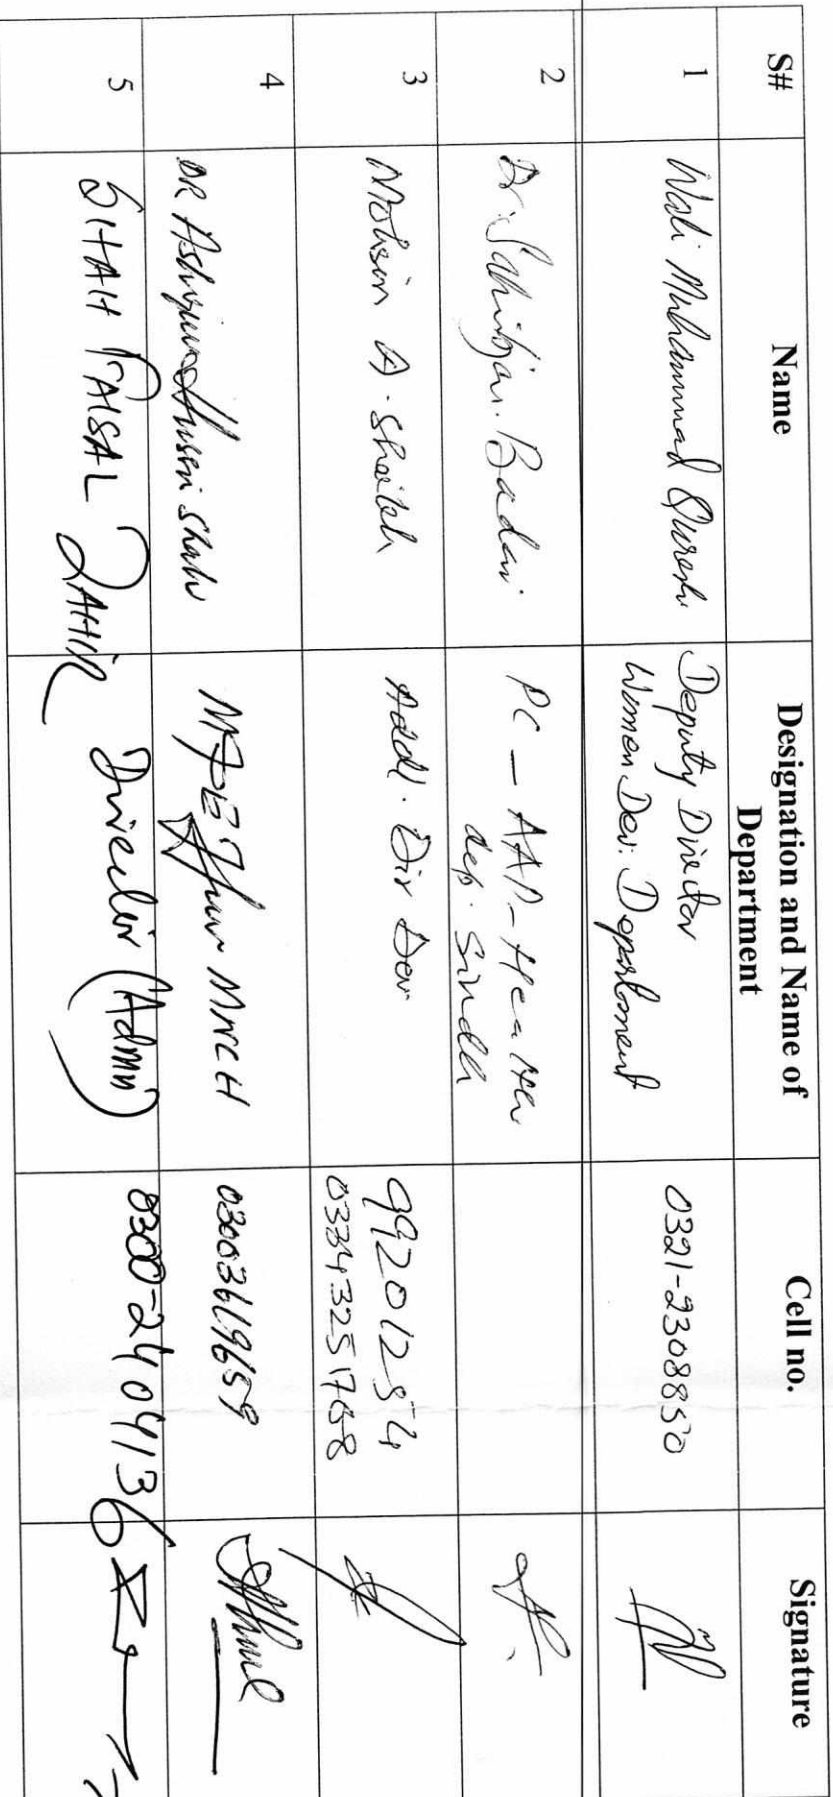 S# Name Designation and Name of Department Cell no. Signature
1 Wali Muhammad Qureshi Deputy Director 0321-2308850
Women Dev: Department
2 Dr. Sahibjan Badar PC - AAP-Health
dep. Sindh
3 Mohsin A. Shaikh Addl. Dir Dev 99201254
03343251768
4 DR Hussain Shah MNCH 03003619659
5 SHAH FAISAL ZAHIR Director (Admn) 0300-2404136